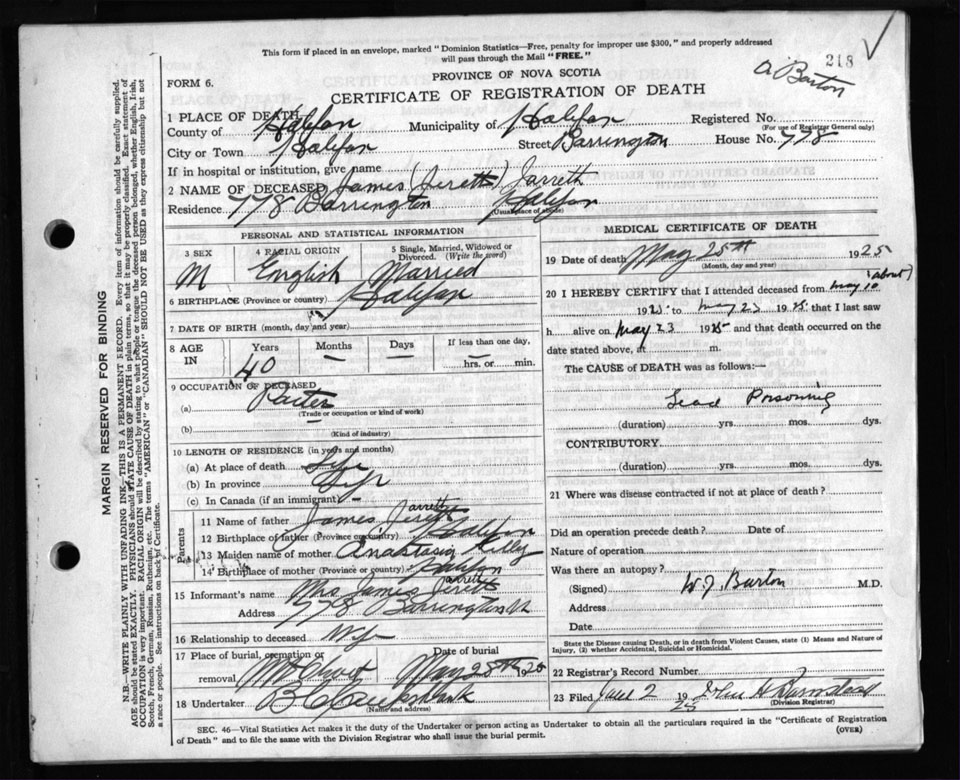 This form if placed in an envelope, marked "Dominion Statistics—Free, penalty for improper use $300," and properly addressed
will pass through the Mail "FREE."
218
FORM 6.
PROVINCE OF NOVA SCOTIA
CERTIFICATE OF REGISTRATION OF DEATH
Barton
1 PLACE OF DEATH
County of Halifax Municipality of Halifax Registered No.
(For use of Registrar General only)
City or Town Halifax Street Barrington House No. 778
If in hospital or institution, give name
2 NAME OF DECEASED James (Jerett) Jarreth
Residence 778 Barrington Halifax
(Usual place of abode)
PERSONAL AND STATISTICAL INFORMATION
3 SEX 4 RACIAL ORIGIN 5 Single, Married, Widowed or
Divorced. (Write the word)
M English Married
6 BIRTHPLACE (Province or country) Halifax
7 DATE OF BIRTH (month, day and year)
8 AGE IN Years Months Days If less than one day,
40 — — — hrs. or min.
9 OCCUPATION OF DECEASED
(a)
(Trade or occupation or kind of work)
(b)
(Kind of industry)
10 LENGTH OF RESIDENCE (in years and months)
(a) At place of death Life
(b) In province Life
(c) In Canada (if an immigrant) —
Parents
11 Name of father James Jerett arrett
12 Birthplace of father (Province or country) Halifax
13 Maiden name of mother Anastasia Kelly
14 Birthplace of mother (Province or country) Halifax
15 Informant's name Mrs James Jerett arrett
Address 778 Barrington St
16 Relationship to deceased Wife
17 Place of burial, cremation or removal Date of burial
May 28th 1925
18 Undertaker
(Name and address)
MEDICAL CERTIFICATE OF DEATH
19 Date of death May 25th 1925
(Month, day and year)
20 I HEREBY CERTIFY that I attended deceased from May 10 (about)
1925 to May 23 1925 that I last saw
h alive on May 23 1925 and that death occurred on the
date stated above, at m.
The CAUSE of DEATH was as follows:—
Lead Poisoning
(duration) yrs. mos. dys.
CONTRIBUTORY
(duration) yrs. mos. dys.
21 Where was disease contracted if not at place of death?
Did an operation precede death? Date of
Nature of operation
Was there an autopsy?
(Signed) W. J. Barton M.D.
Address
Date
State the Disease causing Death, or in death from Violent Causes, state (1) Means and Nature of
Injury, (2) whether Accidental, Suicidal or Homicidal.
22 Registrar's Record Number
23 Filed June 2 1925 John H
(Division Registrar)
SEC. 46—Vital Statistics Act makes it the duty of the Undertaker or person acting as Undertaker to obtain all the particulars required in the "Certificate of Registration
of Death" and to file the same with the Division Registrar who shall issue the burial permit.
(OVER)
MARGIN RESERVED FOR BINDING
N.B.—WRITE PLAINLY WITH UNFADING INK—THIS IS A PERMANENT RECORD. Every item of information should be carefully supplied.
AGE should be stated EXACTLY. PHYSICIANS should STATE CAUSE OF DEATH in plain terms, so that it may be properly classified. Exact statement of
OCCUPATION is very important. RACIAL ORIGIN will be described by stating to what people or tongue the deceased person belonged, whether English, Irish,
Scotch, French, German, Russian, Ruthenian, etc. The terms "AMERICAN" or "CANADIAN" SHOULD NOT BE USED as they express citizenship but not
a race or people. See instructions on back of Certificate.